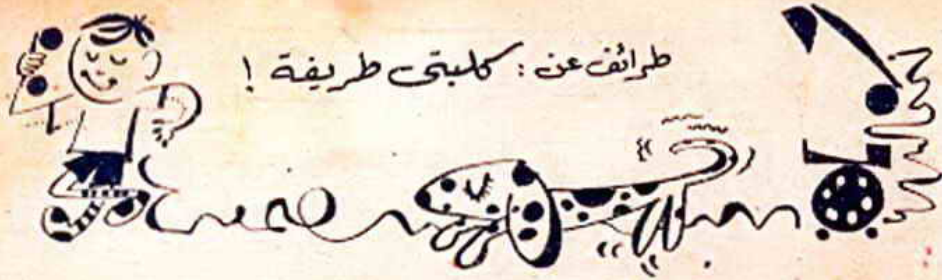 طرائف عن : كلبتى طريفة !